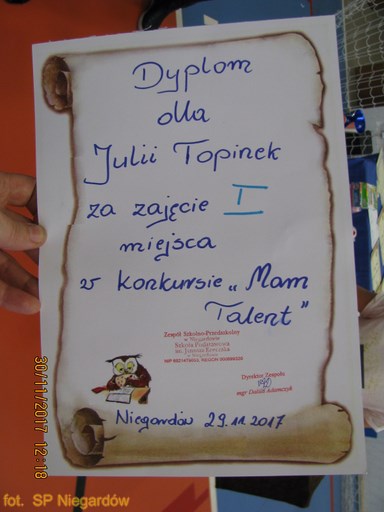 Dyplom
dla
Julii Topinek
za zajęcie I
miejsca
w konkursie „Mam
Talent"
Zespół Szkolno-Przedszkolny
w Niegardowie
Szkoła Podstawowa
im. Janusza Korczaka
w Niegardowie
Dyrektor Zespołu
mgr Adamczyk
Niegardów 29.11.2017
30/11/2017 12:18
fot. SP Niegardów